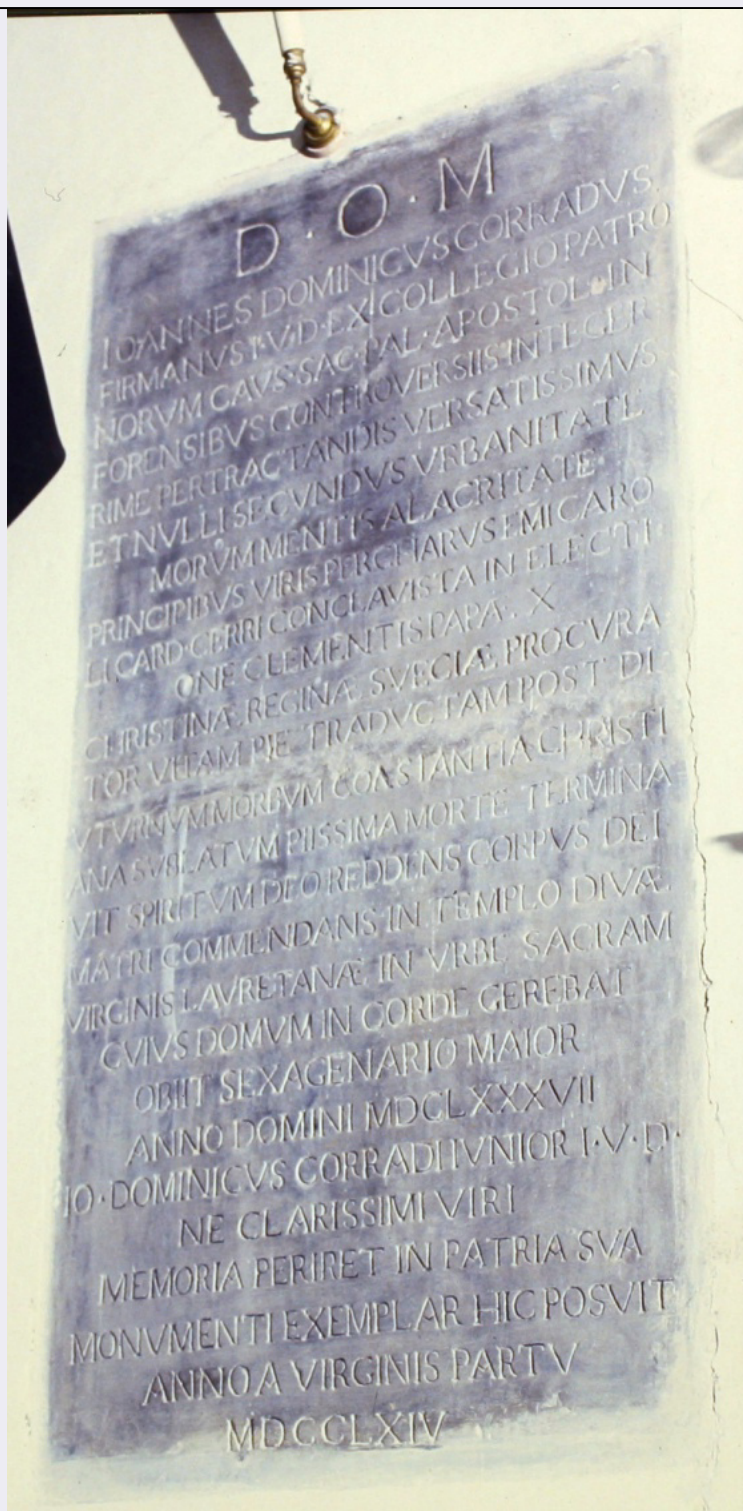 D · O · M
IOANNES DOMINICVS CORRADVS
FIRMANVS I·V·D·EX COLLEGIO PATRO
NORVM CAVS·SAC·PAL·APOSTOL·IN
FORENSIBVS CONTROVERSIIS INTEGER
RIME PERTRACTANDIS VERSATISSIMVS
ET NVLLI SECVNDVS VRBANITATE
MORVM MENTIS ALACRITATE·
PRINCIPIBVS VIRIS PERCHARVS EMI CARO
LI CARD·CERRI CONCLAVISTA IN ELECTI·
ONE CLEMENTIS PAPÆ· X
CHRISTINÆ REGINÆ SVECIÆ PROCVRA·
TOR VITAM PIE TRADVCTAM POST DI·
VTVRNVM MORBVM CONSTANTIA CHRISTI
ANA SVBLATVM PIISSIMA MORTE TERMINA
VIT SPIRITVM DEO REDDENS CORPVS DEI
MATRI COMMENDANS IN TEMPLO DIVÆ
VIRGINIS LAVRETANÆ IN VRBE SACRAM
CVIVS DOMVM IN CORDE GEREBAT
OBIIT SEXAGENARIO MAIOR
ANNO DOMINI MDCLXXXVII
IO·DOMINICVS CORRADI IVNIOR I·V·D·
NE CLARISSIMI VIRI
MEMORIA PERIRET IN PATRIA SVA
MONVMENTI EXEMPLAR HIC POSVIT
ANNO A VIRGINIS PARTV
MDCCLXIV